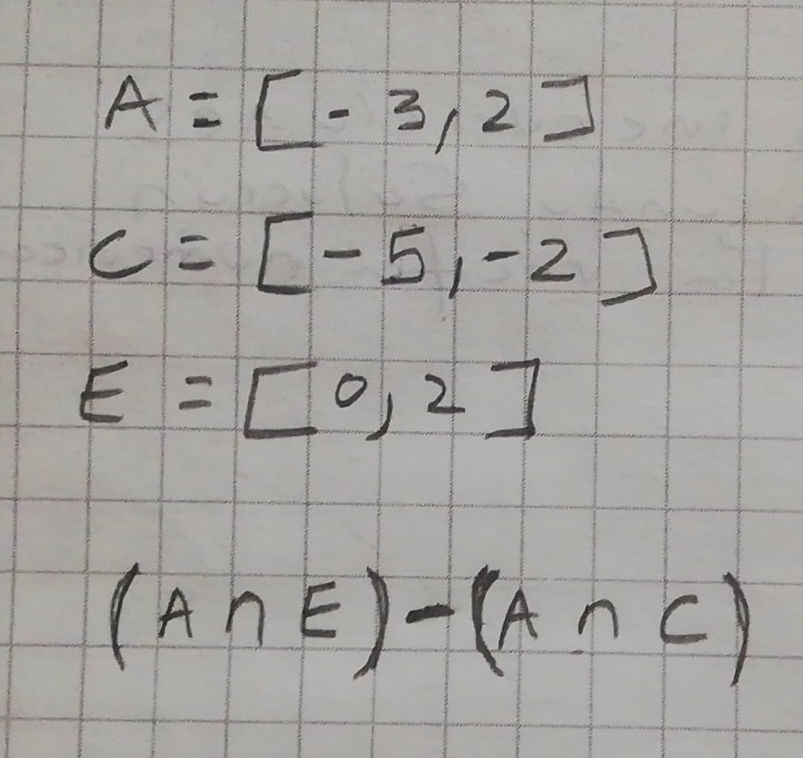 A = [-3,2]
C = [-5,-2]
E = [0,2]
(A ∩ E)-(A ∩ C)